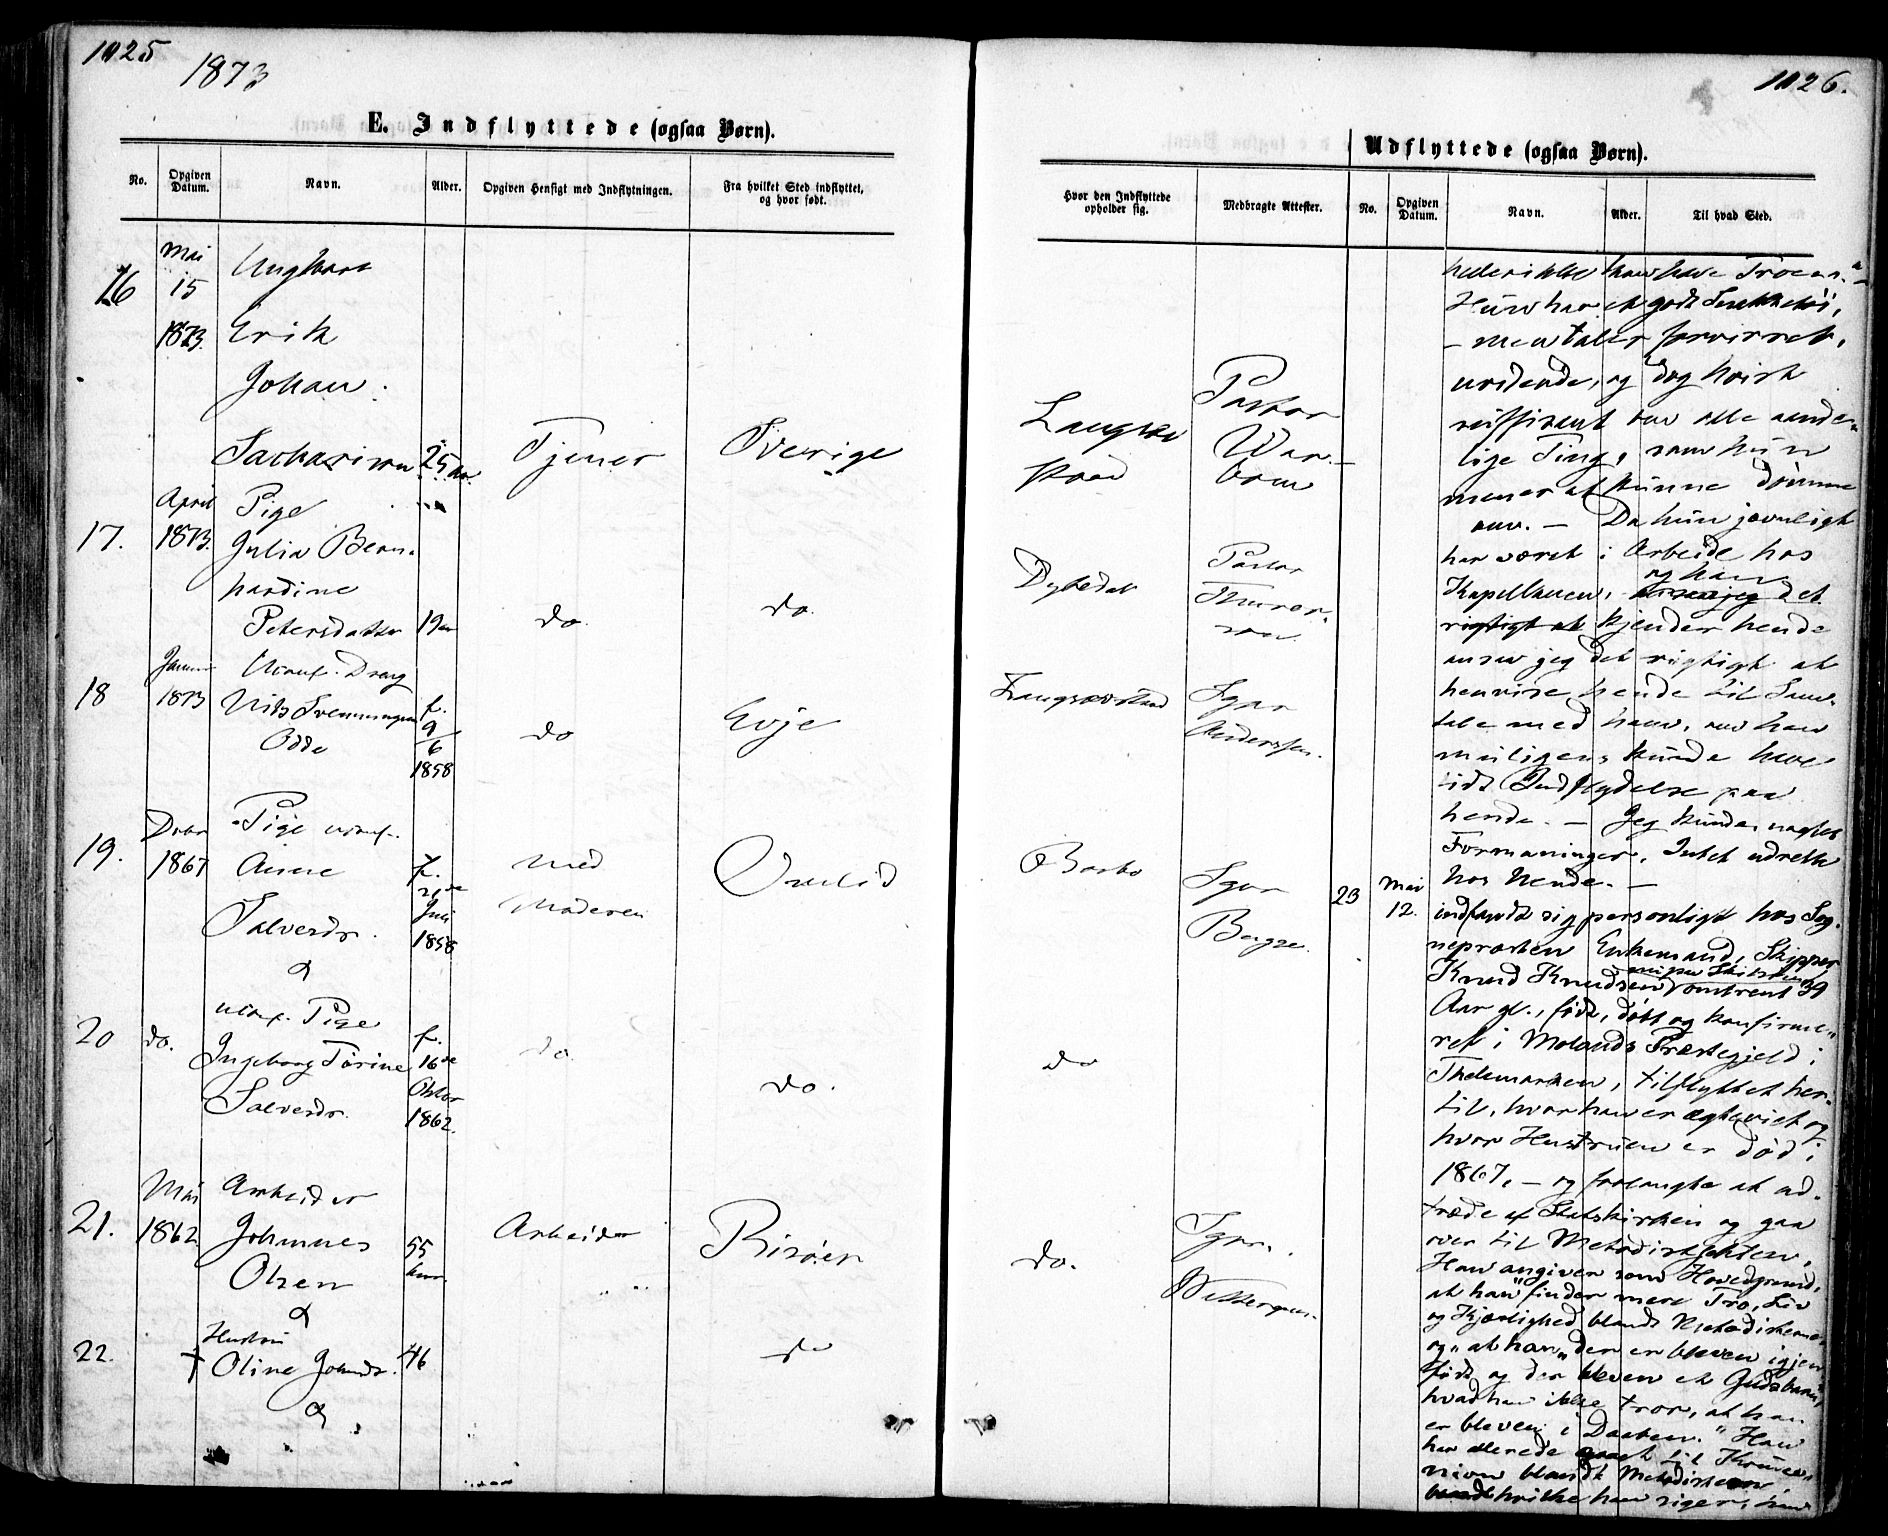 1025
1873
E. Indflyttede (ogsaa Børn).
No.
Opgiven Datum.
Navn.
Alder.
Opgiven Hensigt med Indflytningen.
Fra hvilket Sted indflyttet, og hvor født.
16
Mai
15
1873.
Ungkarl
Erik
Johan
25 Aar
Tjener
Sverige
17.
April
1873.
Pige
Julia Bern-
hardine
Petersdatter
19 Aar
do.
do.
18
1873
Dreng
Nils Svenningsen
Odde
f.
9
6
1858
do
Evje
19.
1867
Pige
Anne
Salvesdr.
&
f.
Juli
1858
Med
Moderen
20
do.
Pige
Ingeborg Torine
Salvesdr.
f.
16de
1862.
do
do.
21.
Mai
1862
Arbeider
Johannes
Olsen
&
55
Aar.
Arbeider
Risøer
22.
Hustru
† Oline
46
do
&
1026.
Udflyttede (ogsaa Børn).
Hvor den Indflyttede opholder sig.
Medbragte Attester.
No.
Opgiven Datum.
Navn.
Alder.
Til hvad Sted.
Pastor
Dybedal
Pastor
Sgpr
Barbo
Sgpr
do
do.
Sgpr.
heller ikke kan have Troen."
Hun har et godt Snakketøi,
– men taler forvirret,
og dog høist
om alle aande-
lige Ting, som hun
mener at kunne dømme
om. – Da hun jævnligt
har været i Arbeide hos
Kapellanen,
og han
ansaa jeg det
rigtigt at kjender hende
ansaa jeg det rigtigt at
henvise hende til Sam-
tale med ham, om han
muligens kunde have
lidt Indflydelse paa
hende. – Jeg kunde, nagtet
Formaninger, Intet udrette
hos hende. –
23
Mai
12.
indfandt sig personligt hos Sog-
nepræsten Enkemand, Skipper
Knud Knudsen omtrent 39
Aar gl., født, døbt og konfirme-
ret i Molands Præstegjeld i
Thelemarken, tilflyttet her-
til, hvor han er ægteviet og
hvor Hustruen er død i
1867, – og forlangte at ud-
træde af Statskirken og gaa
over til Methodistsekten.
Han angiver som Hovedgrund,
at han "finder mere Tro, Liv
og Kjærlighed blandt Methodisterne"
og "at han der er bleven igjen-
født og der bleven et Gudsbarn,
hvad han ikke tror, at han
er bleven i Daaben." Han
har allerede gaaet til Kommu-
nion blandt Methodisterne,
hvilke han siger, han